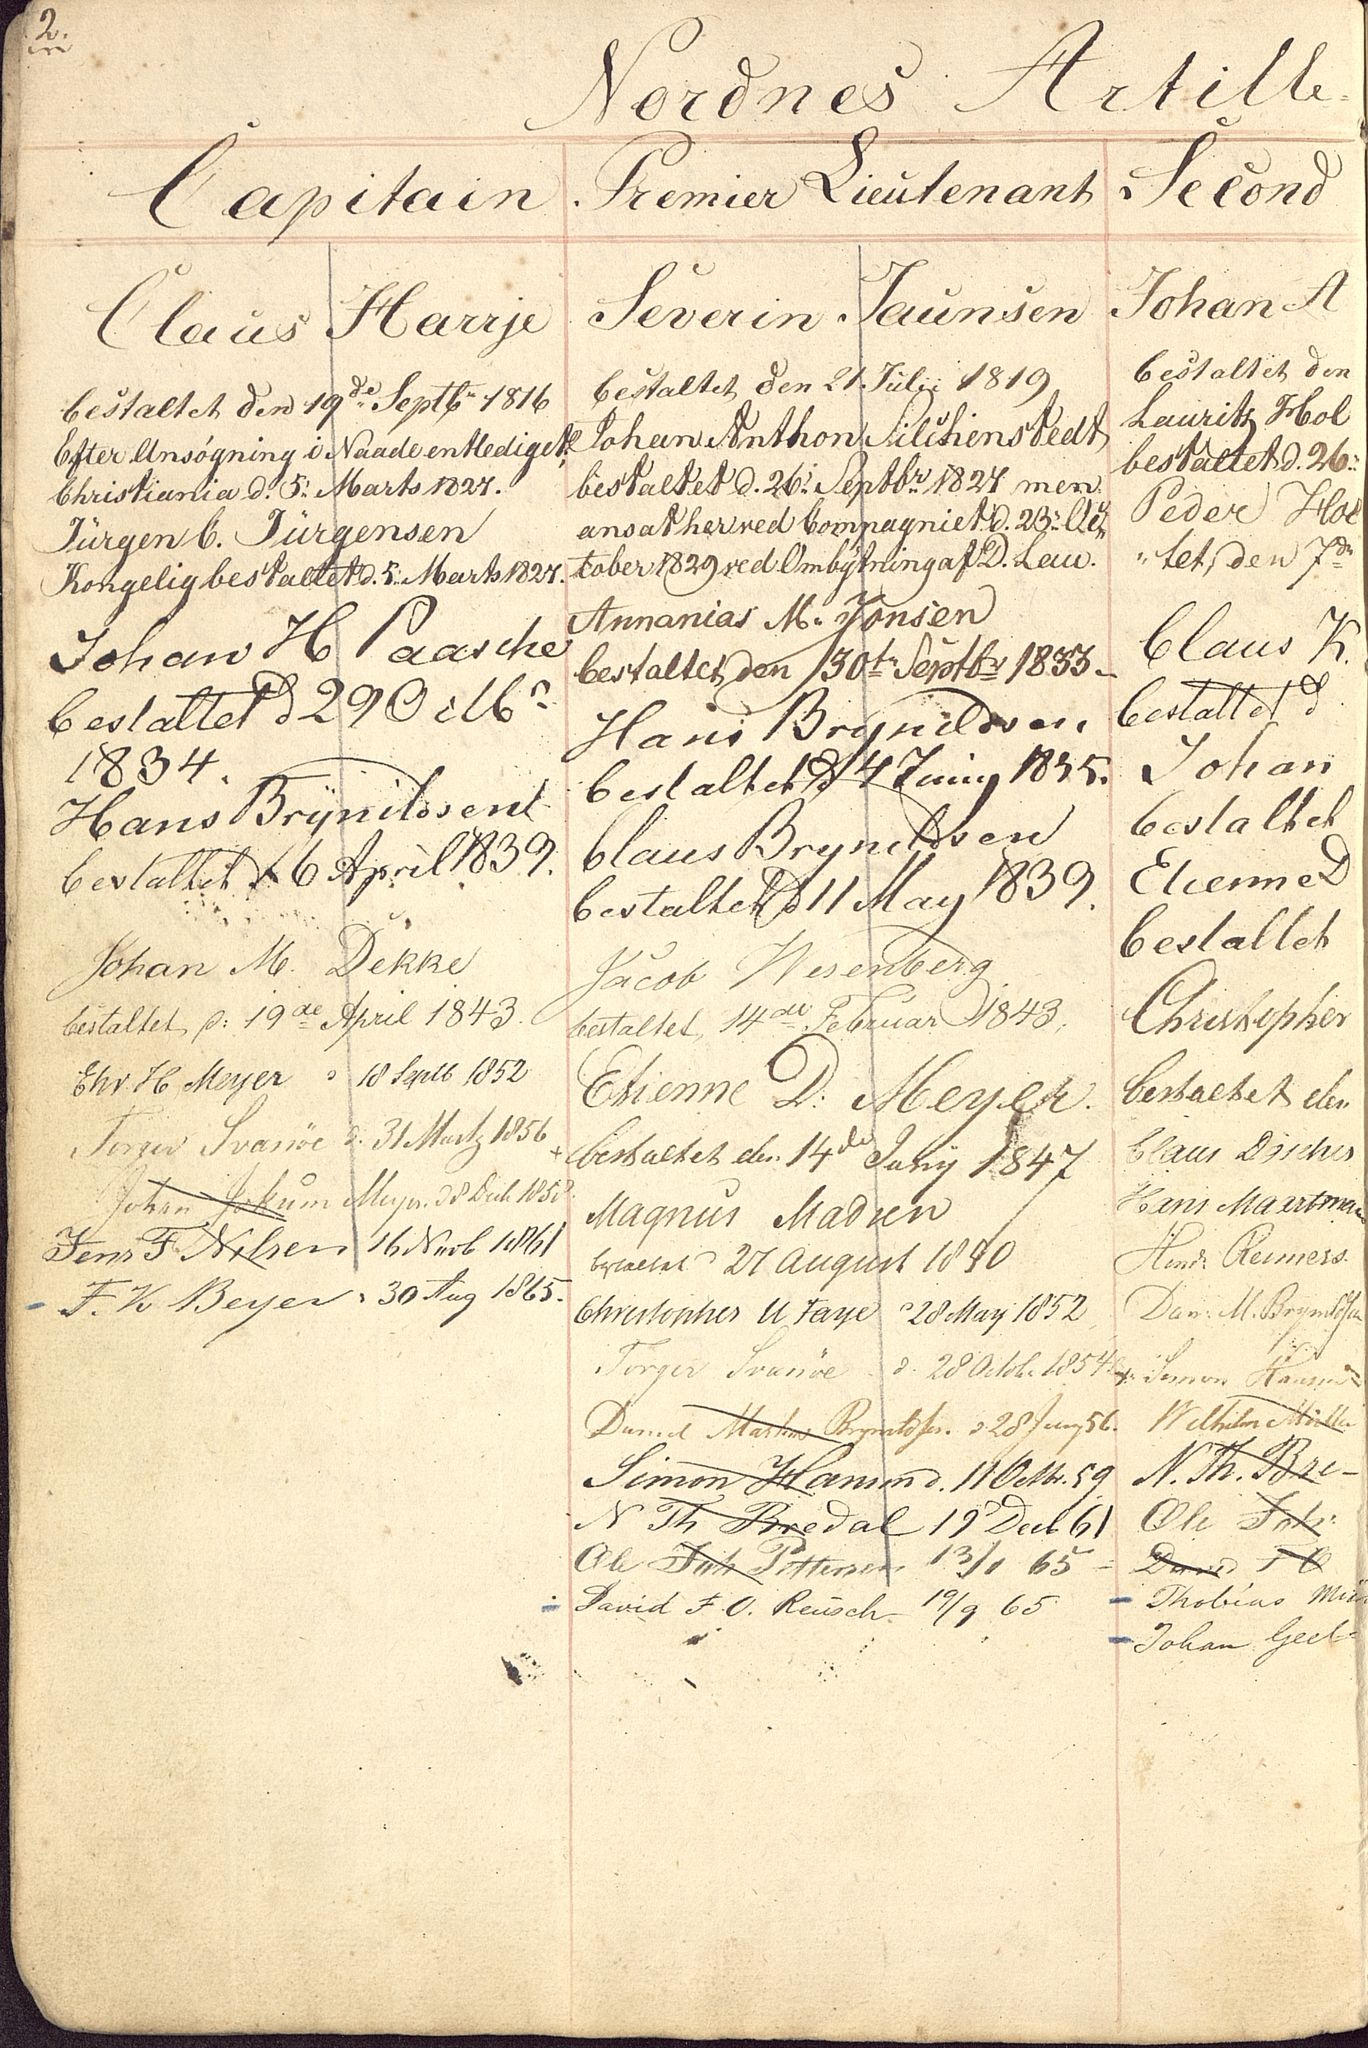 2.
Nordnes Artille-
Capitain
Claus Harrje
bestaltet den 19de Septb 1816
Efter Ansøgning i Naade entlediget
Christiania d. 5 Marts 1827.
Jürgen C. Jürgensen
Kongelig bestaltet d. 5 Marts 1827.
Johan H Paasche
bestaltet d 29 Octbr
1834.
Hans Brynildsen
bestaltet d 6 April 1839.
Johan M. Dekke
bestaltet d: 19de April 1843.
Chr H Meyer d 18 Septb 1852
Torger Svanöe d. 31 Martz 1856
Johan Jokum Meyer d 8 Dech 1858
Jens F Nilsen 16 Novb 1861
F. K Beyer 30 Aug 1865.
Premier Lieutenant
Severin Jaunsen
bestaltet den 21 Julii 1819
Johan Anthon Silchenstedt
bestaltet d. 26 Septbr 1827 men
ansat her ved Compagniet d. 23 Oc
tober 1829 ved Ombytning af D. Lau.
Annanias M. Jonsen
bestaltet den 30te Septbr 1833
Hans Brynildsen
bestaltet d 4 Juny 1835.
Claus Brynildsen
bestaltet d 11 May 1839.
Jacob Wesenberg
bestaltet, 14de Februar 1843,
Etienne D. Meyer.
bestaltet den 14de Juny 1847
Magnus Madsen
bestaltet d 27 August 1850
Christopher U Faye d 28 May 1852
Torger Svanöe d. 28 Octob. 1854
Daniel Markus Brynildsen. d 28 Juny 56.
Simon Hansen d. 11 Octbr. 59
N Th Bredal 19 Decb 61
Ole Joh Pettersen 13/1 65
David F O. Reusch 19/9 65
Second
Johan A
bestaltet den
Lauritz Hol
bestaltet d. 26
Peder Hol
tet, den 7de
Claus K.
bestaltet d
Johan
bestaltet
Etienne D
bestaltet
Christopher
bestaltet den
Claus Discher
Hans Maartman
Hend. Reimers.
Dan. M. Brynildsen
Simon Hansen
Wilhelm Müller
N. Th. Bre-
Ole Joh.
David F O
Thobias Mün
Johan Geel